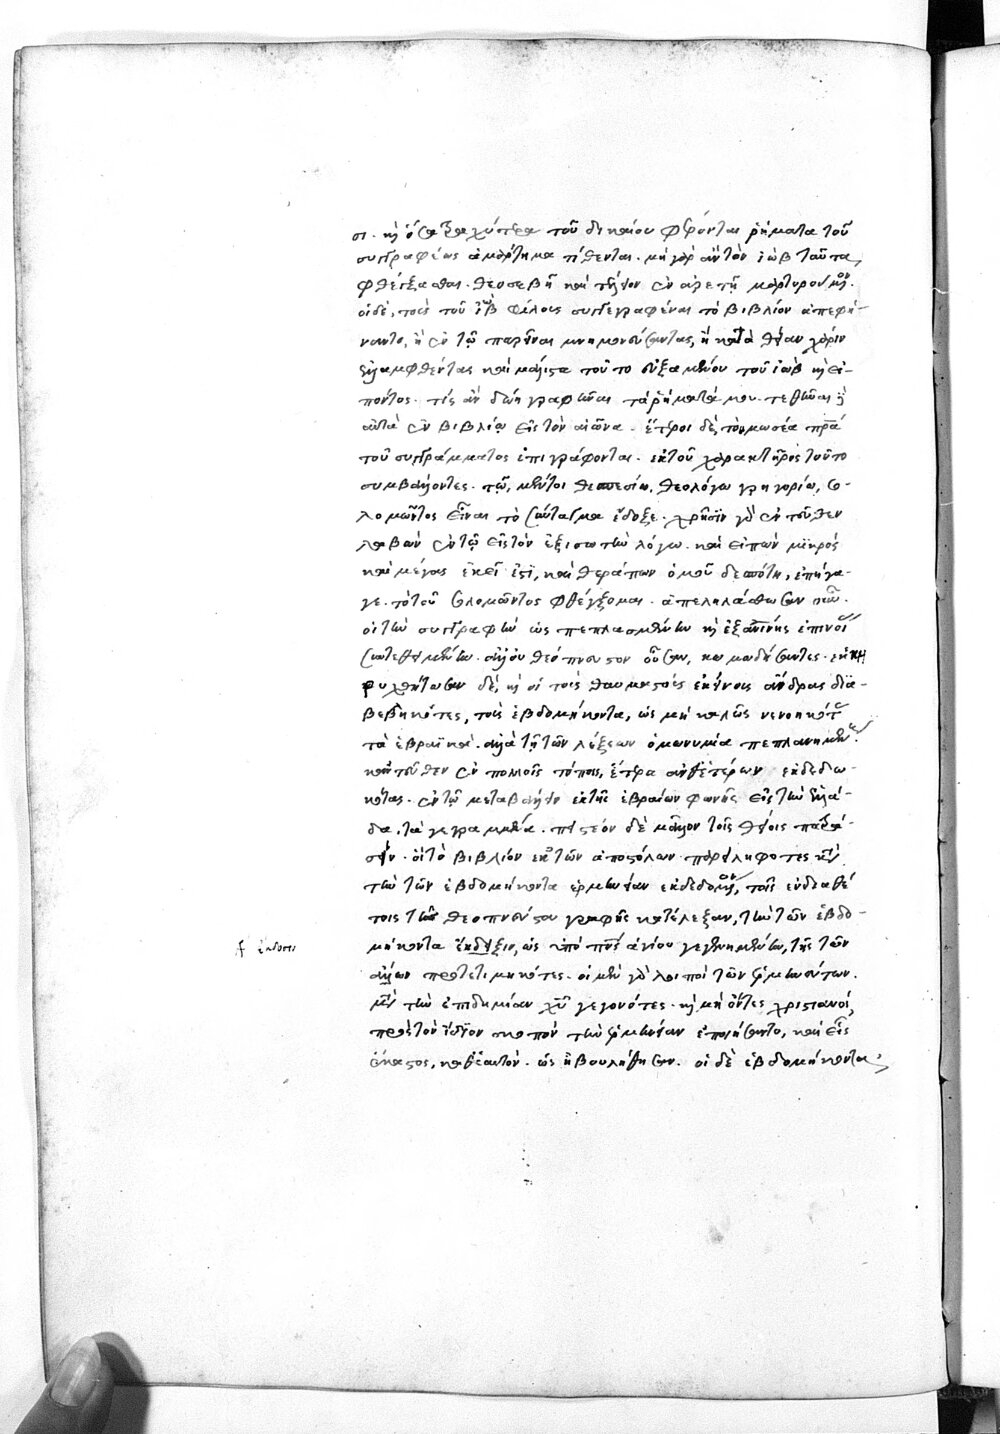 σι· κὴ ὅσα τραχύτερα τοῦ δικαίου φέρονται ῥήματα τοῦ
συγγραφέως ἁμάρτημα τίθενται· μὴ γὰρ ἂν τὸν ἰὼβ ταῦτα
φθέγξασθαι· θεοσεβῆ καὶ τέλειον ἐν ἀρετῇ μαρτυρούμενον·
οἱ δὲ, τοὺς τοῦ ἰὼβ φίλους συγγεγραφέναι τὸ βιβλίον ἀπεφή-
ναντο, ἢ ἐν τῷ παρεῖναι μνημονεύσαντας, ἢ κατὰ θείαν χάριν
ἐλλαμφθέντας καὶ μάλιστα τοῦτο εὐξαμένου τοῦ ἰὼβ κὴ εἰ-
πόντος· τίς ἂν δώη γραφῆναι τὰ ῥήματά μου· τεθῆναι δὲ
αὐτὰ ἐν βιβλίῳ εἰς τὸν αἰῶνα· ἕτεροι δὲ, τὸν μωσέα πρα
τοῦ συγγράμματος ἐπιγράφονται· ἐκ τοῦ χαρακτῆρος τοῦτο
συμβαλόντες· τῷ, μέντοι θεσπεσίῳ, θεολόγῳ γρηγορίῳ, σο-
λομῶντος εἶναι τὸ σύνταγμα ἔδοξε· χρῆσιν γὰρ ἐντεῦθεν
λαβὼν ἐν τῷ εἰς τὸν ἐξισωτὴν λόγῳ· καὶ εἰπὼν μικρὸς
καὶ μέγας ἐκεῖ ἐστὶ, καὶ θεράπων ὁμοῦ δεσπότῃ, ἐπήγα-
γε· τὸ τοῦ σολομῶντος φθέγξομαι· ἀπεληλάσθωσαν
οἱ τὴν συγγραφὴν ὡς πεπλασμένην κὴ ἐξ ἀνθρωπίνης ἐπινοίας
συντεθειμένην· ἀλλ' οὐ θεόπνευστον οὖσαν, κωμῳδήσαντες· ἐκκη
ρυχθήτωσαν δὲ, κὴ οἱ τοὺς θαυμαστοὺς ἐκείνους ἄνδρας δια-
βεβηκότες, τοὺς ἑβδομήκοντα, ὡς μὴ καλῶς νενοηκότας
τὰ ἑβραϊκὰ· ἀλλὰ τῇ τῶν λέξεων ὁμωνυμίᾳ πεπλανημένους·
κἀντεῦθεν ἐν πολλοῖς τόποις, ἕτερα ἀνθ' ἑτέρων ἐκδεδω-
κότας· ἐν τῷ μεταβάλλειν ἐκ τῆς ἑβραίων φωνῆς εἰς τὴν ἑλλά-
δα, τὰ γεγραμμένα· πιστέον δὲ μᾶλλον τοῖς θείοις πατρά-
σιν· οἳ τὸ βιβλίον ἐκ τῶν ἀποστόλων παρειληφότες κατὰ
τὴν τῶν ἑβδομήκοντα ἑρμηνείαν ἐκδεδομένον, τοῖς ἐνδιαθέ
τοις τῆς θεοπνεύστου γραφῆς κατέλεξαν, τὴν τῶν ἑβδο-
μήκοντα ἔκδειξιν, ὡς ὑπὸ πνς ἁγίου γεγενημένην, τῆς τῶν
ἄλλων προτετιμηκότες· οἱ μὲν γὰρ λοιποὶ τῶν ἑρμηνευτῶν·
μετὰ τὴν ἐπιδημίαν χῦ γεγονότες· κὴ μὴ ὄντες χριστιανοί,
πρὸς τὸν ἴδιον σκοπὸν τὴν ἑρμηνείαν ἐποιήσαντο, καὶ εἷς
ἕκαστος, καθ' ἑαυτὸν· ὡς ἠβουλήθησαν· οἱ δὲ ἑβδομήκοντα,
ἔκδοσιν